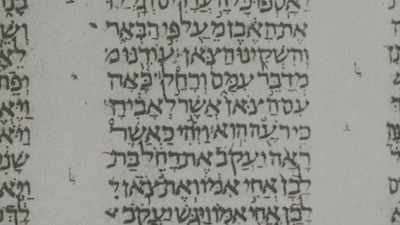 יאספו כל העדרים וגללו
את האבן מעל פי הבאר
והשקינו הצאן עודנו מ
מדבר עמם ורחל באה
עם הצאן אשר לאביה
כי רעה הוא ויהי כאשר
ראה יעקב את רחל בת
לבן אחי אמו ואת צאן ל
לבן אחי אמו ויגש יעקב